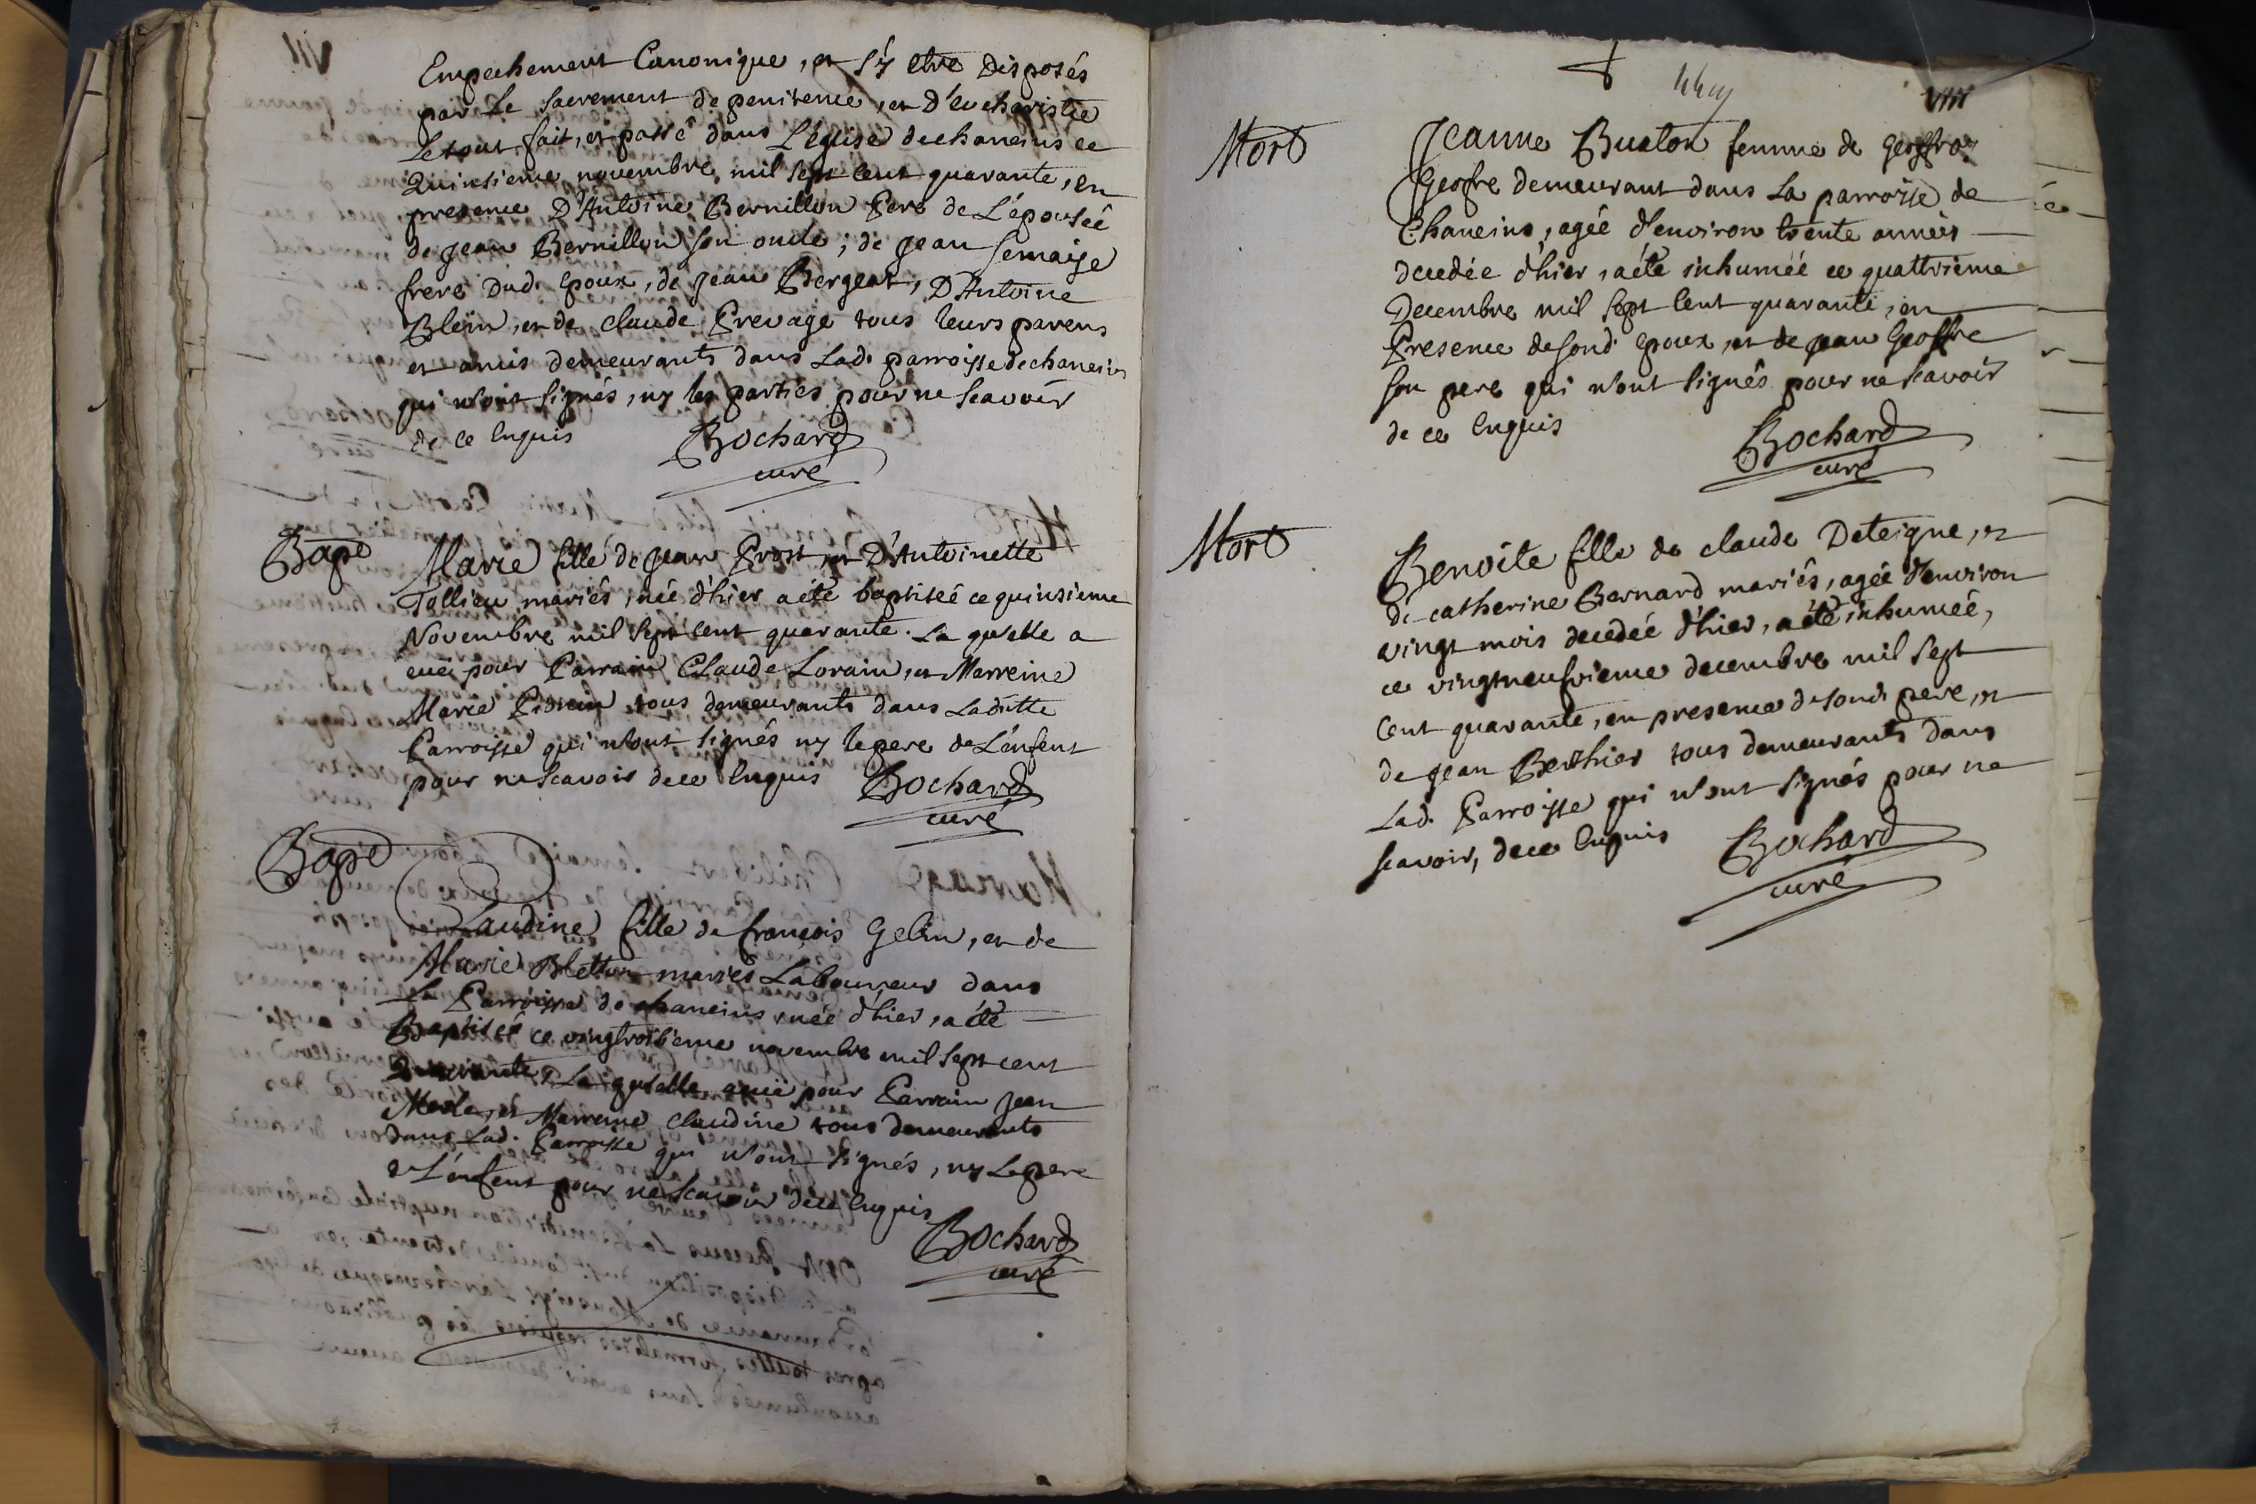 Empechement Canonique, et s'y etre Disposés
par Le sacrement de penitence, et d'eucharistie
Le tout fait, et passé dans L'église de chaneins ce
quinsieme novembre mil sept cent quarante, en
presence D'Antoine Bernillon Pere de L'épouseé
de jean Bernillon son oncle, de jean semaise
frere Dud. Epoux, de jean Bergeat, D'Antoine
Blein, et de claude Prevage tous leurs parens
et amis demeurants dans Lad. parroisse de chaneins
qui n'ont signés, ny les parties pour ne scavoir
de ce Enquis
Bochard
curé
Bapt
Marie fille de jean Prost, et D'Antoinette
Tollieu mariés, née d'hier a été baptiseé ce quinsieme
Novembre mil sept cent quarante. La qu'elle a
eue pour Parrain Claude Lorain, et Marreine
Marie tous demeurants dans Laditte
Parroisse qui n'ont signés ny le pere de L'enfent
pour ne scavoir de ce Enquis
Bochard
curé
Bapt
Claudine fille de françois Gelin, et de
Marie Bletton mariés Laboureur dans
La Parroisse de chaneins née d'hier, a été
Baptiseé ce vingtroisieme novembre mil sept cent
Quarante, La qu'elle a eue pour Parrain jean
Merle, et Marreine claudine tous demeurants
dans Lad. Parroisse qui n'ont signés, ny Le pere
de L'enfent pour ne scavoir de ce Enquis
Bochard
curé
VIII
Mort
Jeanne Buaton femme de
Geofre demeurant dans La parroisse de
Chaneins, ageé d'environ trente anneés
decedée d'hier, a été inhumeé ce quattrieme
Decembre mil sept cent quarante, en
Presence de sond. Epoux, et de jean Geoffre
son pere qui n'ont signés pour ne scavoir
de ce Enquis
Bochard
curé
Mort
Benoite fille de claude Deteigne, et
de catherine Bernard mariés, ageé d'environ
vingt mois decedeé d'hier, a été inhumeé,
ce vingtneufvieme decembre mil sept
cent quarante, en presence de sond. pere, et
de jean Berthier tous demeurants dans
Lad. Parroisse qui n'ont signés pour ne
scavoir, de ce Enquis
Bochard
curé